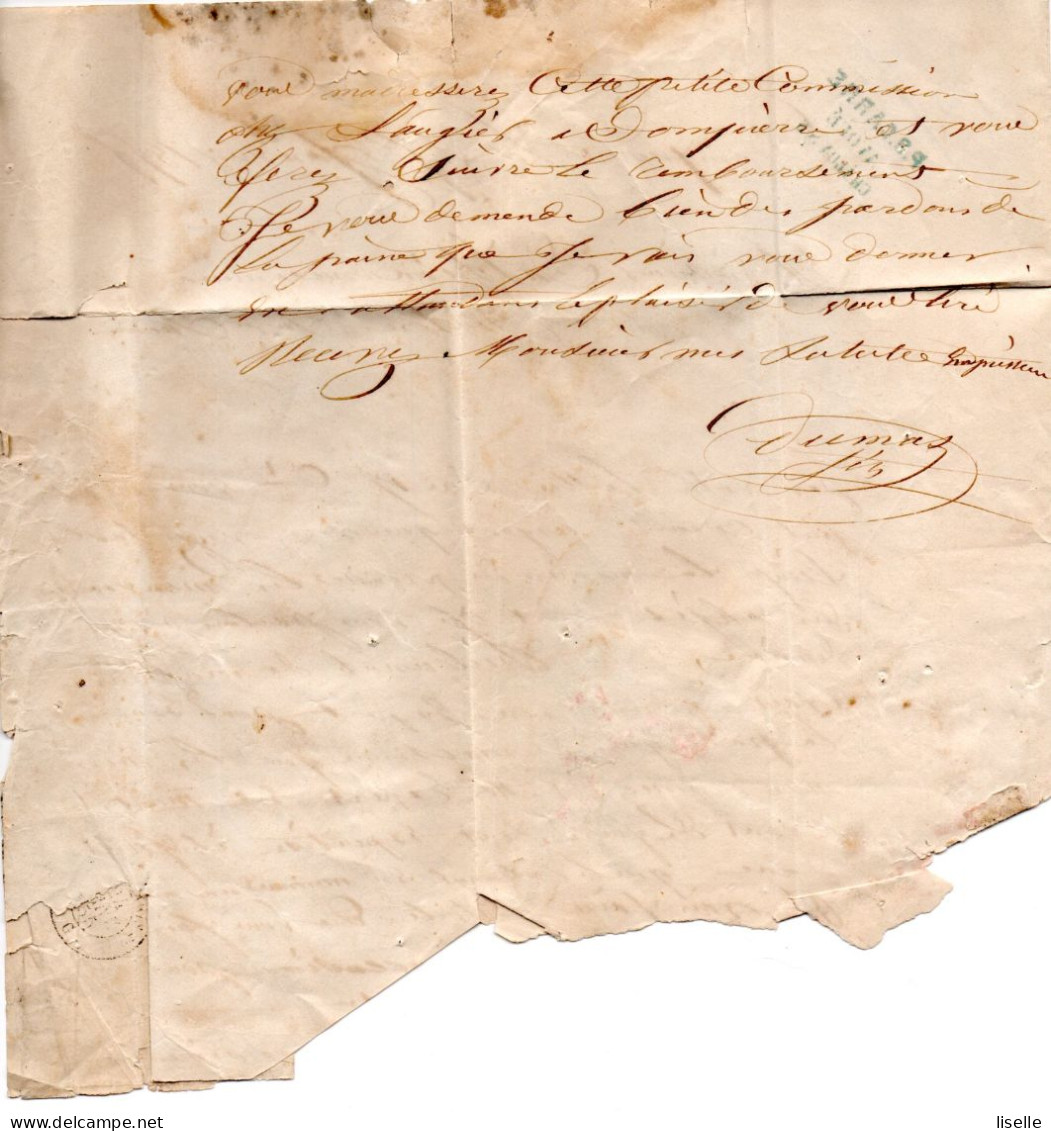 vous madresserez Cette petite Commission
chez Laugier a Dompierre et vous
ferez Suivre le remboursement
Je vous demende bien des pardons de
La paine que Je vais vous donner
en attandans le plaisir de vous lire
Recevez Monsieur mes Salutes
Dumas
liselle